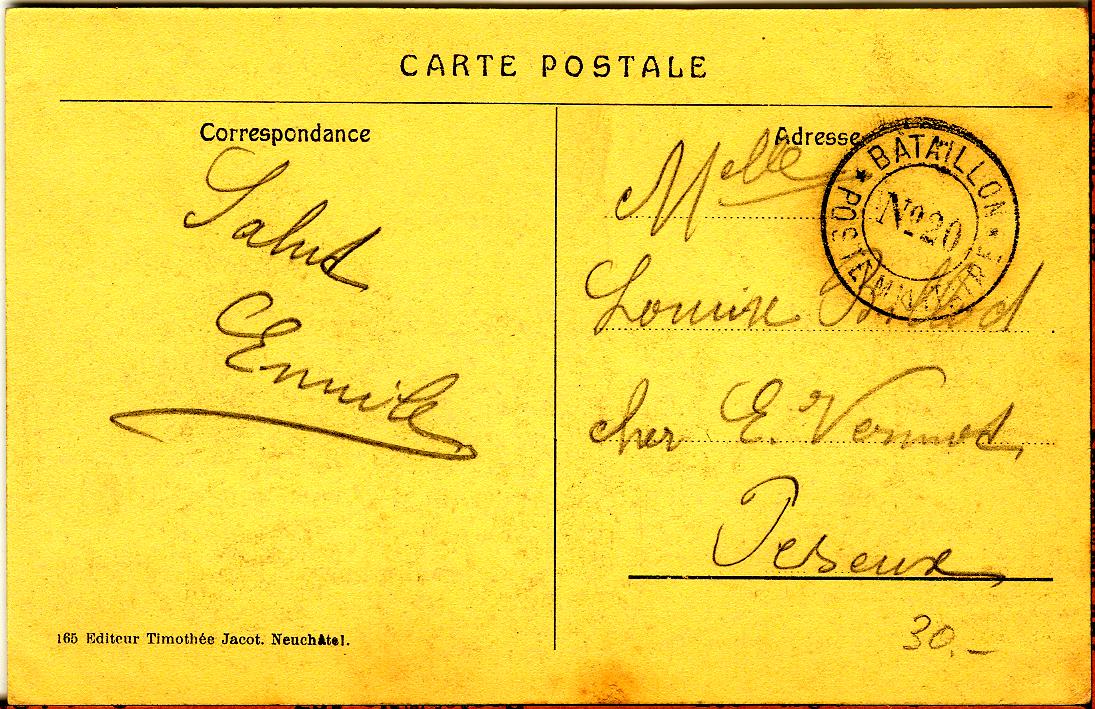 CARTE POSTALE
Correspondance
Salut
Emile
165 Editeur Timothée Jacot. Neuchâtel.
Adresse
Melle
Louise
chez E. Vermot
Peseux
30.–
★ BATAILLON ★ POSTE MILITAIRE
No 20